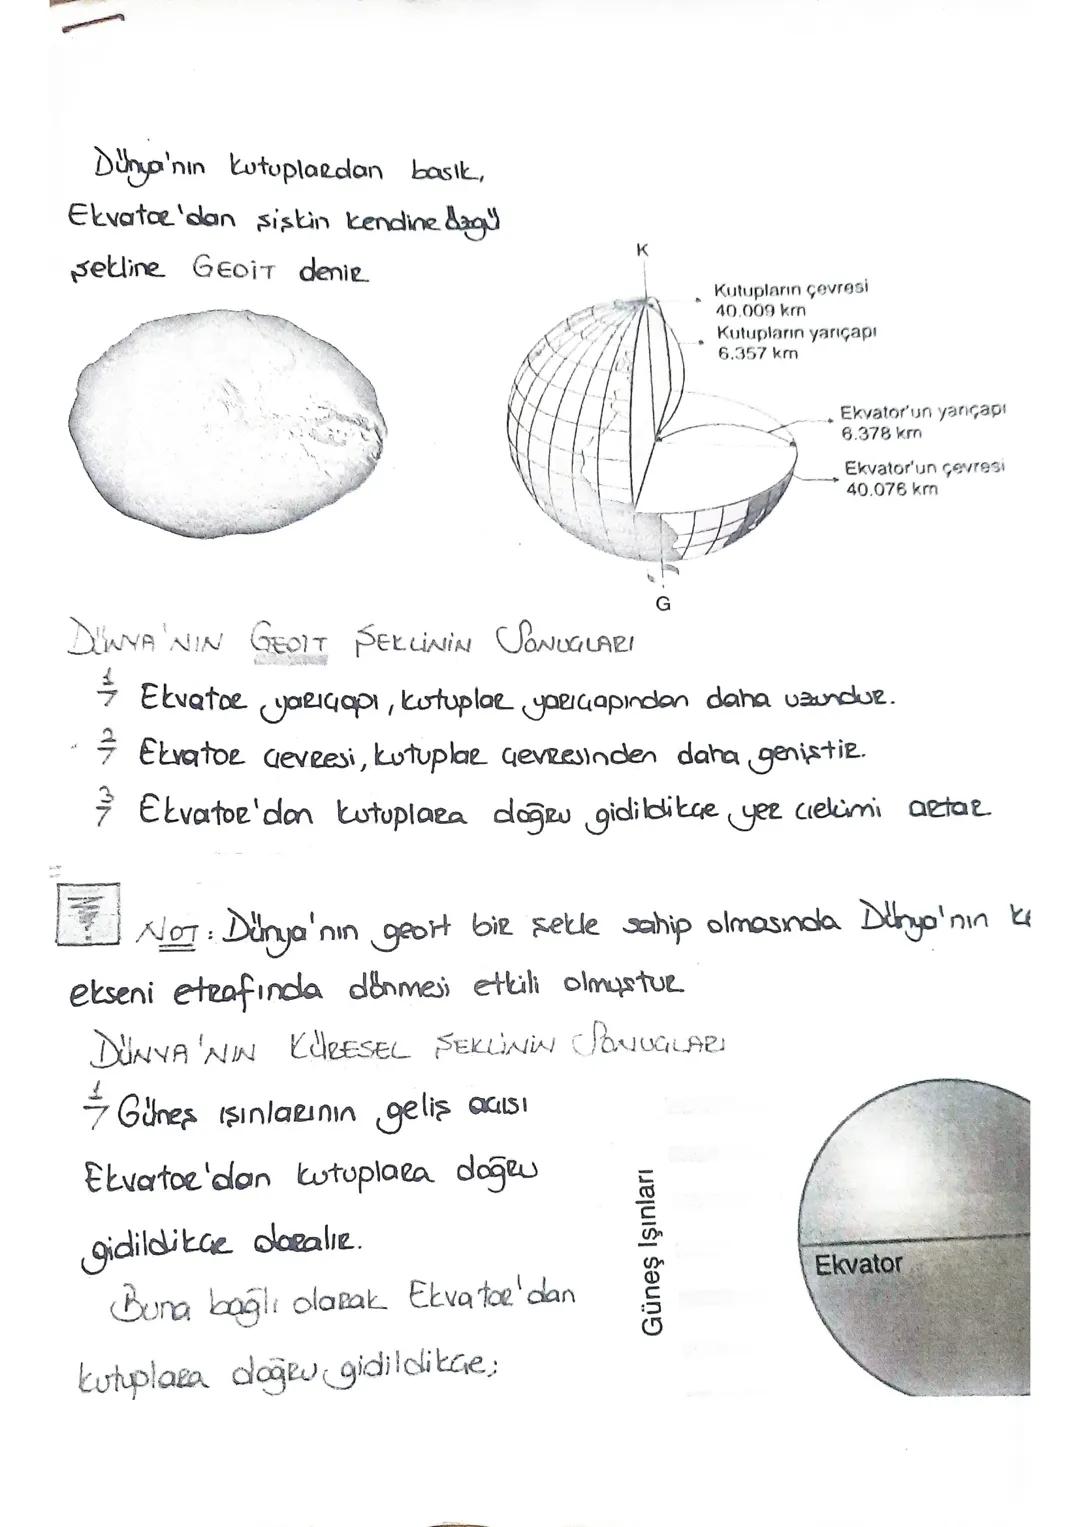 Dünya'nın kutuplardan basık,
Ekvator'dan şişkin kendine özgü
şekline GEOİT denir
K
Kutupların çevresi
40.009 km
Kutupların yarıçapı
6.357 km
Ekvator'un yarıçapı
6.378 km
Ekvator'un çevresi
40.076 km
G
DÜNYA'NIN GEOIT ŞEKLİNİN SONUÇLARI
1/7 Ekvator yarıçapı, kutuplar yarıçapından daha uzundur.
2/7 Ekvator çevresi, kutuplar çevresinden daha geniştir.
3/7 Ekvator'dan kutuplara doğru gidildikçe yer çekimi artar
NOT: Dünya'nın geoit bir şekle sahip olmasında Dünya'nın
ekseni etrafında dönmesi etkili olmuştur
DÜNYA'NIN KÜRESEL ŞEKLİNİN SONUÇLARI
1/7 Güneş ışınlarının geliş açısı
Ekvator'dan kutuplara doğru
gidildikçe daralır.
Buna bağlı olarak Ekvator'dan
kutuplara doğru gidildikçe;
Güneş Işınları
Ekvator